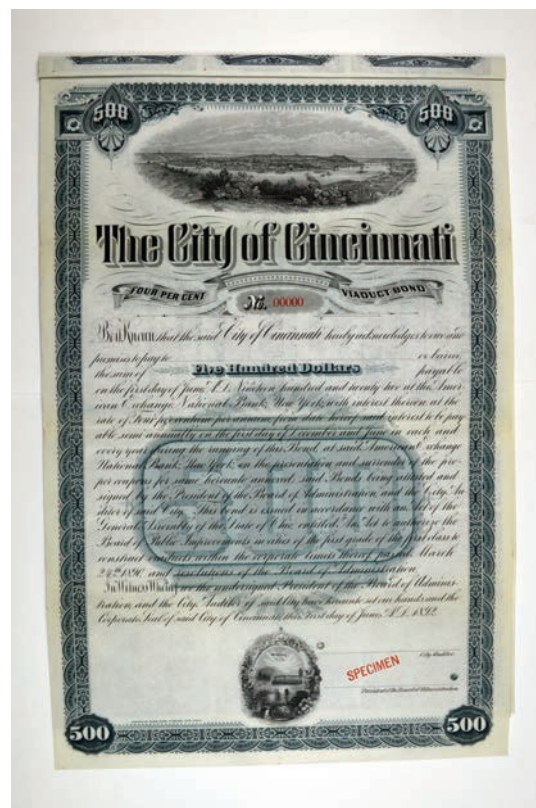 500 500
The City of Cincinnati
FOUR PER CENT VIADUCT BOND
No. 00000
Be it Known that the said City of Cincinnati hereby acknowledges to owe and
promises to pay to or bearer,
the sum of Five Hundred Dollars payable
on the first day of June, A.D. Nineteen hundred and twenty two at the Amer-
ican Exchange National Bank, New York, with interest thereon at the
rate of Four per centum per annum from date hereof, said interest to be pay
able semi annually on the first day of December and June in each and
every year during the running of this Bond, at said American Exchange
National Bank, New York, on the presentation and surrender of the pro-
per coupons for same hereunto annexed, said Bonds being attested and
signed by the President of the Board of Administration, and the City Au-
ditor of said City. This bond is issued in accordance with an Act of the
General Assembly of the State of Ohio entitled, An Act to authorize the
Board of Public Improvements in cities of the first grade of the first class to
construct viaducts within the corporate limits thereof passed March
24th 1890, and resolutions of the Board of Administration.
In Witness Whereof we the undersigned President of the Board of Adminis-
tration, and the City Auditor of said City have hereunto set our hands and the
Corporate Seal of said City of Cincinnati, this First day of June, A.D. 1892.
City Auditor
SPECIMEN
President of the Board of Administration
500 500